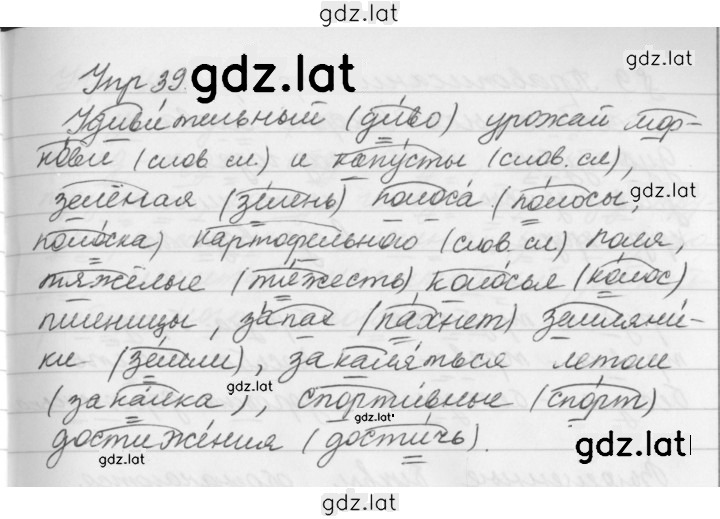 gdz.lat
Упр 39. gdz.lat gdz.lat
Удивительный (диво) урожай мор-
кови (слов сл.) и капусты (слов. сл),
зелёная (зелень) полоса (полосы,
gdz.lat
полоска) картофельного (слов. сл) поля,
тяжёлые (тяжесть) колосья (колос)
пшеницы, запах (пахнет) земляни-
ки (земли), закаляться летом
gdz.lat
(закалка), спортивные (спорт)
gdz.lat
достижения (достичь).
gdz.lat gdz.lat
gdz.lat